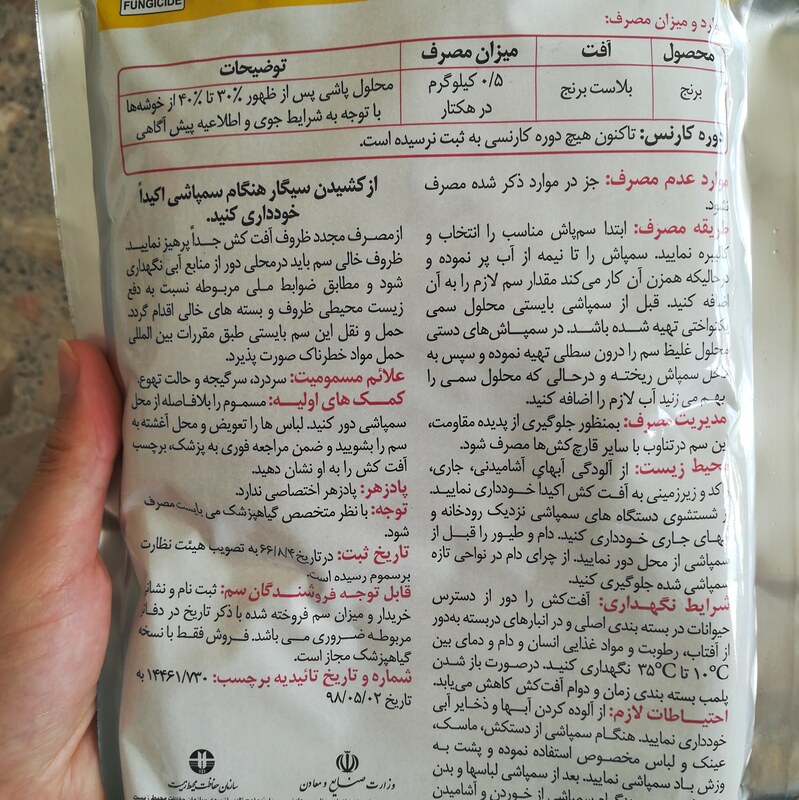 FUNGICIDE
موارد و میزان مصرف:
محصول آفت میزان مصرف توضیحات
برنج بلاست برنج ۰/۵ کیلوگرم در هکتار محلول پاشی پس از ظهور ۳۰٪ تا ۴۰٪ از خوشه‌ها
با توجه به شرایط جوی و اطلاعیه پیش آگاهی
دوره کارنس: تاکنون هیچ دوره کارنسی به ثبت نرسیده است.
موارد عدم مصرف: جز در موارد ذکر شده مصرف
نشود.
طریقه مصرف: ابتدا سم‌پاش مناسب را انتخاب و
کالیبره نمایید. سمپاش را تا نیمه از آب پر نموده و
درحالیکه همزن آن کار می‌کند مقدار سم لازم را به آن
اضافه کنید. قبل از سمپاشی بایستی محلول سمی
یکنواختی تهیه شده باشد. در سمپاش‌های دستی
محلول غلیظ سم را درون سطلی تهیه نموده و سپس به
داخل سمپاش ریخته و درحالی که محلول سمی را
بهم می زنید آب لازم را اضافه کنید.
مدیریت مصرف: بمنظور جلوگیری از پدیده مقاومت،
این سم درتناوب با سایر قارچ‌کش‌ها مصرف شود.
محیط زیست: از آلودگی آبهای آشامیدنی، جاری،
راکد و زیرزمینی به آفت کش اکیداً خودداری نمایید.
از شستشوی دستگاه های سمپاشی نزدیک رودخانه و
آبهای جاری خودداری کنید. دام و طیور را قبل از
سمپاشی از محل دور نمایید. از چرای دام در نواحی تازه
سمپاشی شده جلوگیری کنید.
شرایط نگهداری: آفت‌کش را دور از دسترس
حیوانات در بسته بندی اصلی و در انبارهای دربسته به‌دور
از آفتاب، رطوبت و مواد غذایی انسان و دام و دمای بین
۱۰°C تا ۳۵°C نگهداری کنید. درصورت باز شدن
پلمب بسته بندی زمان و دوام آفت‌کش کاهش می‌یابد.
احتیاطات لازم: از آلوده کردن آبها و ذخایر آبی
خودداری نمایید. هنگام سمپاشی از دستکش، ماسک،
عینک و لباس مخصوص استفاده نموده و پشت به
وزش باد سمپاشی نمایید. بعد از سمپاشی لباسها و بدن
سمپاشی از خوردن و آشامیدن
از کشیدن سیگار هنگام سمپاشی اکیداً
خودداری کنید.
ازمصرف مجدد ظروف آفت کش جداً پرهیز نمایید.
ظروف خالی سم باید درمحلی دور از منابع آبی نگهداری
شود و مطابق ضوابط ملی مربوطه نسبت به دفع
زیست محیطی ظروف و بسته های خالی اقدام گردد.
حمل و نقل این سم بایستی طبق مقررات بین المللی
حمل مواد خطرناک صورت پذیرد.
علائم مسمومیت: سردرد، سرگیجه و حالت تهوع.
کمک های اولیه: مسموم را بلافاصله از محل
سمپاشی دور کنید. لباس ها را تعویض و محل آغشته به
سم را بشویید و ضمن مراجعه فوری به پزشک، برچسب
آفت کش را به او نشان دهید.
پادزهر: پادزهر اختصاصی ندارد.
توجه: با نظر متخصص گیاهپزشک می بایست مصرف
شود.
تاریخ ثبت: درتاریخ ۶۶/۸/۴ به تصویب هیئت نظارت
برسموم رسیده است.
قابل توجه فروشندگان سم: ثبت نام و نشانی
خریدار و میزان سم فروخته شده با ذکر تاریخ در دفاتر
مربوطه ضروری می باشد. فروش فقط با نسخه
گیاهپزشک مجاز است.
شماره و تاریخ تائیدیه برچسب: ۱۴۴۶۱/۷۳۰ به
تاریخ ۹۸/۰۵/۰۲
وزارت صنایع و معادن
سازمان حفاظت محیط زیست